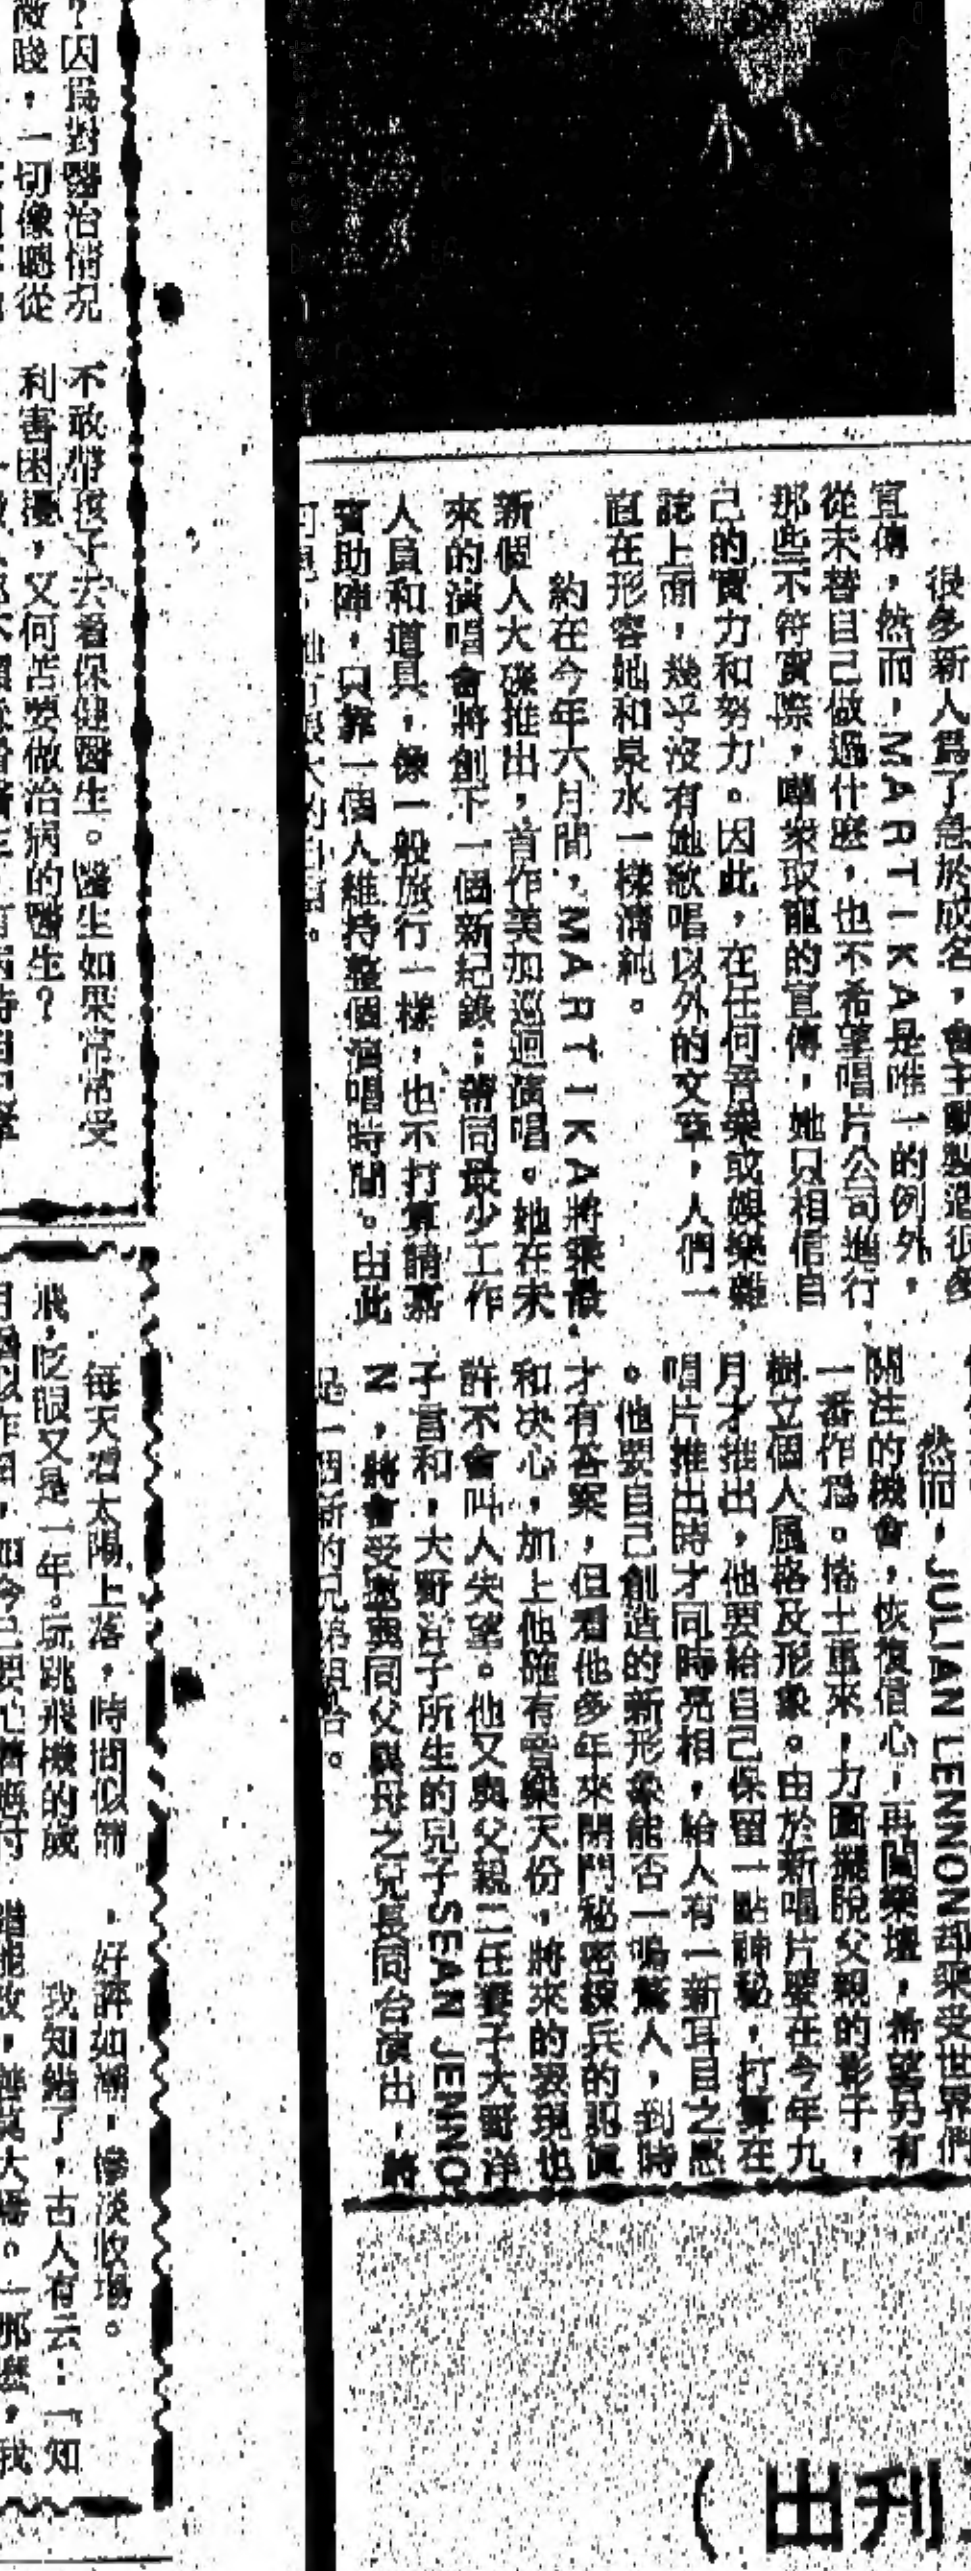 很多新人為了急於成名，會主動製造很多
宣傳，然而，MARTIKA是唯一的例外，
從未替自己做過什麼，也不希望唱片公司進行
那些不符實際，嘩衆取寵的宣傳，她只相信自
己的實力和努力。因此，在任何音樂或娛樂雜
誌上面，幾乎沒有她歌唱以外的文章，人們一
直在形容她和泉水一樣清純。
約在今年六月間，MARTIKA將渠最
新個人大碟推出，首作美加巡迴演唱。她在未
來的演唱會將創下一個新紀錄：帶同最少工作
人員和道具，像一般旅行一樣，也不打算請嘉
賓助陣，只靠一個人維持整個演唱時間。由此
然而，JULIAN LENNON却乘受世界們
關注的機會，恢復信心，再闖樂壇，希望另有
一番作爲。捲土重來，力圖擺脫父親的影子，
樹立個人風格及形象。由於新唱片要在今年九
月才推出，他要給自己保留一點神秘，打算在
唱片推出時才同時亮相，給人有一新耳目之感
。他要自己創造的新形象能否一鳴驚人，到時
才有答案，但看他多年來閉門秘密練兵的認眞
和决心，加上他確有音樂天份，將來的表現也
許不會叫人失望。他又與父親二任妻子大野洋
子言和，大野洋子所生的兒子SEAN JENNO
N，將會受邀與同父異母之兄長同台演出，將
是一個新的兄弟組合。
？因爲對醫治情況
微賤，一切像聽從
不敢帶孩子去看保健醫生。醫生如果常常受
利害困擾，又何苦要做治病的醫生？
每天遇太陽上落，時間似箭
飛，眨眼又是一年。玩跳飛機的歲
，好醉如潮，慘淡收場。
我知錯了，古人有云：「知
（出刊